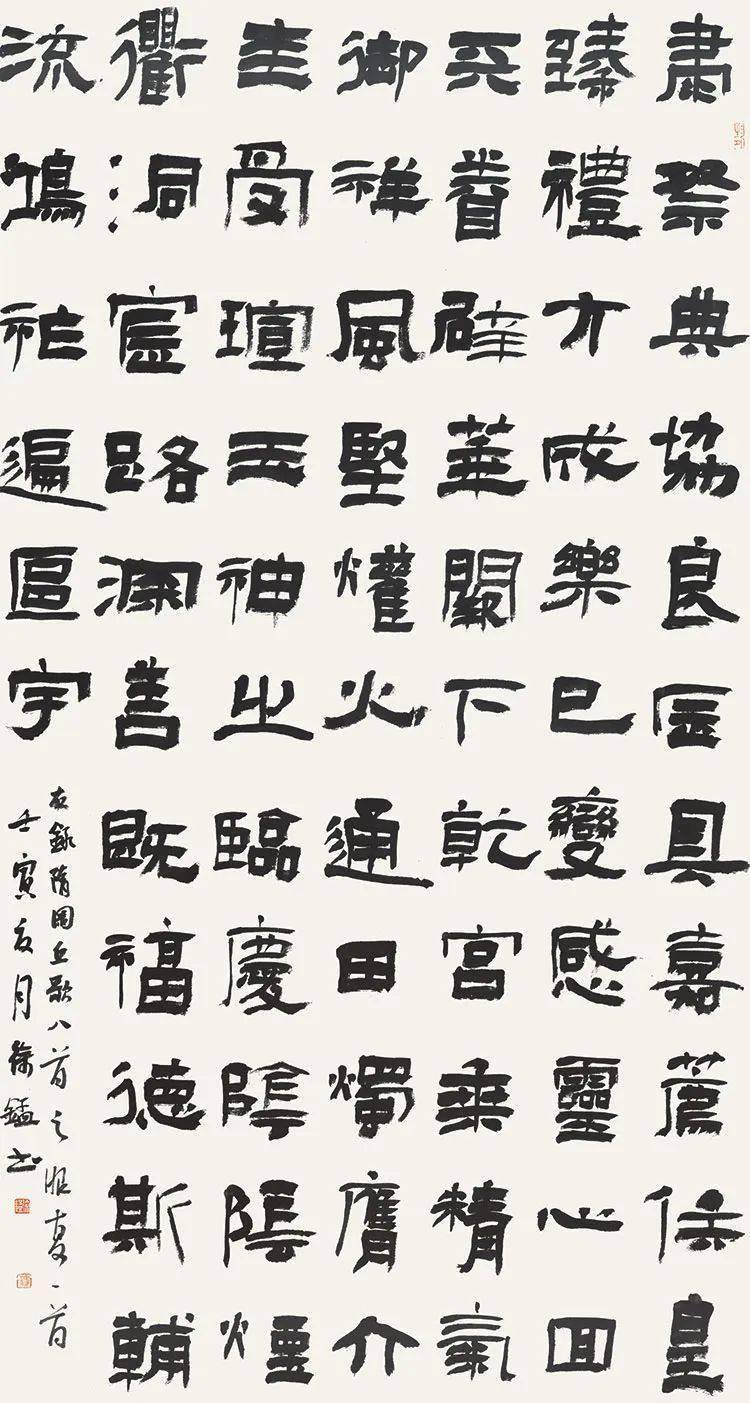 肅祭典協良辰具嘉薦俟皇
臻禮方成樂已變感靈心回
天睠辟華闕下乾宮乘精氣
御祥風望爟火通田燭膺介
圭受瑄玉神之臨慶陰陰煙
衢洞宸路深善既福德斯輔
流鴻祚遍區宇
右錄隋圜丘歌八首之昭夏一首
壬寅夏月徐書